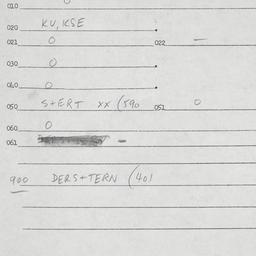 010 0
020 KU, KSE
021 0 022 —
030 0
040 0
050 S+ERT XX (590 051 0
060 0
061 -
900 DERS+TERN (401